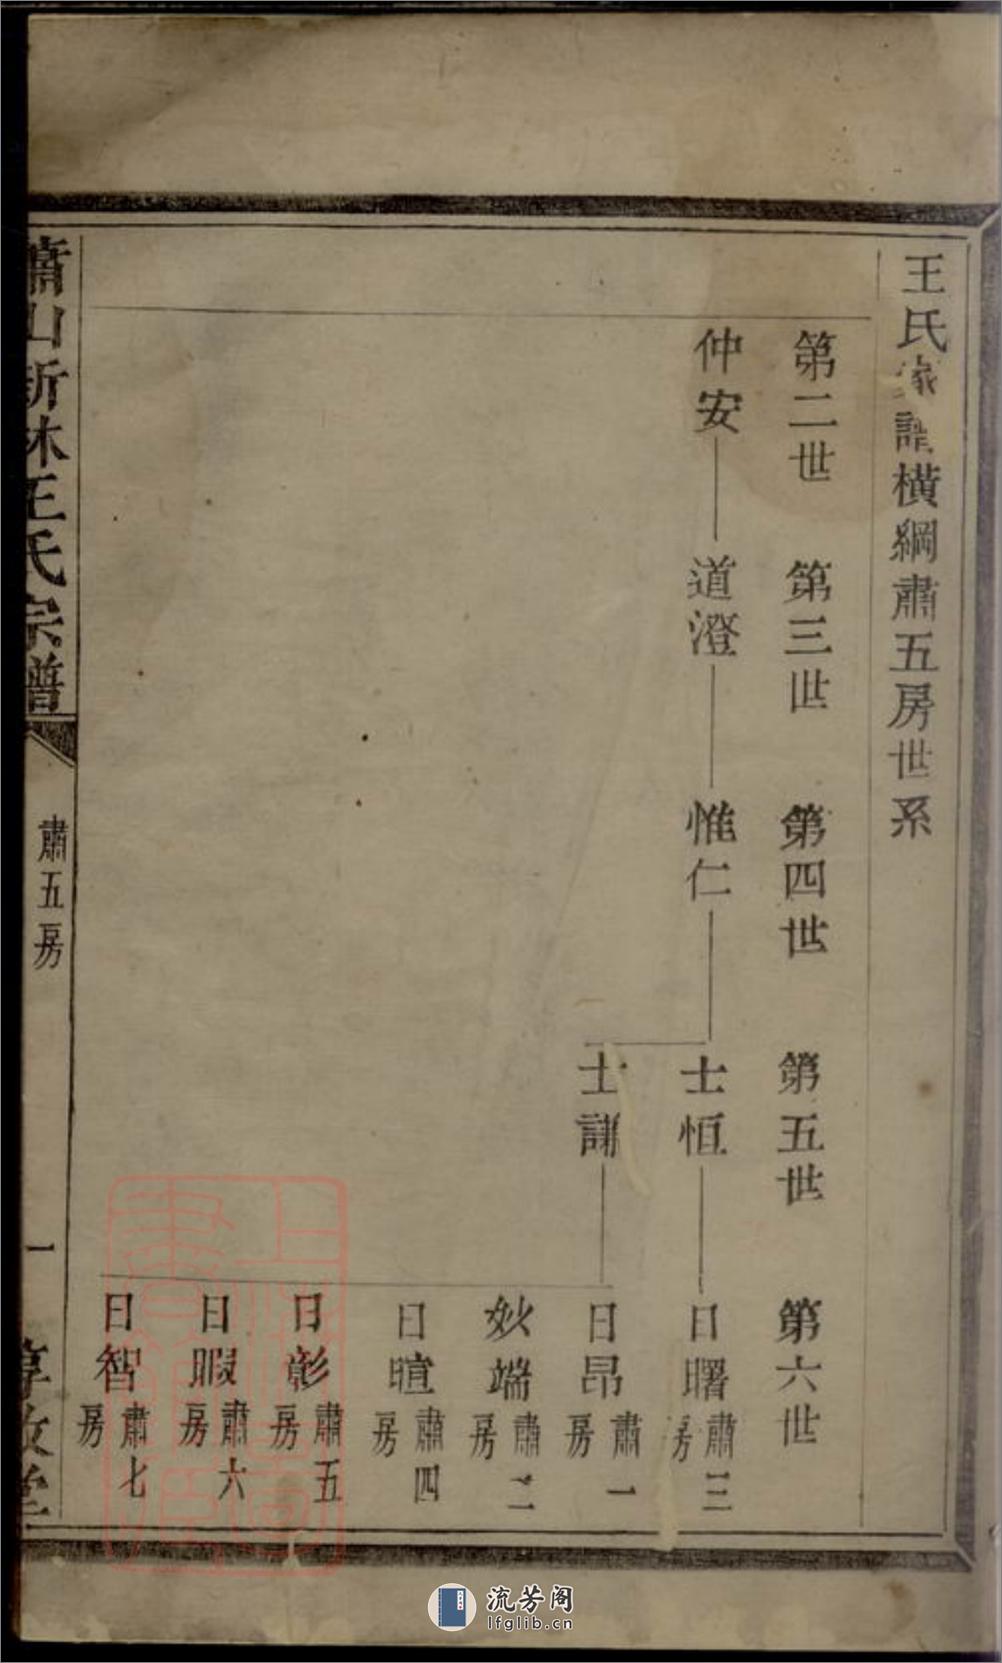 王氏家譜橫綱肅五房世系
第二世
第三世
第四世
第五世
第六世
仲安
道澄
惟仁
士恒
日曙
肅三房
士謙
日昂
肅一房
妙端
肅二房
日暄
肅四房
日彰
肅五房
日暇
肅六房
日智
肅七房
蕭山新林王氏宗譜
肅五房
一
流芳阁
lfglib.cn